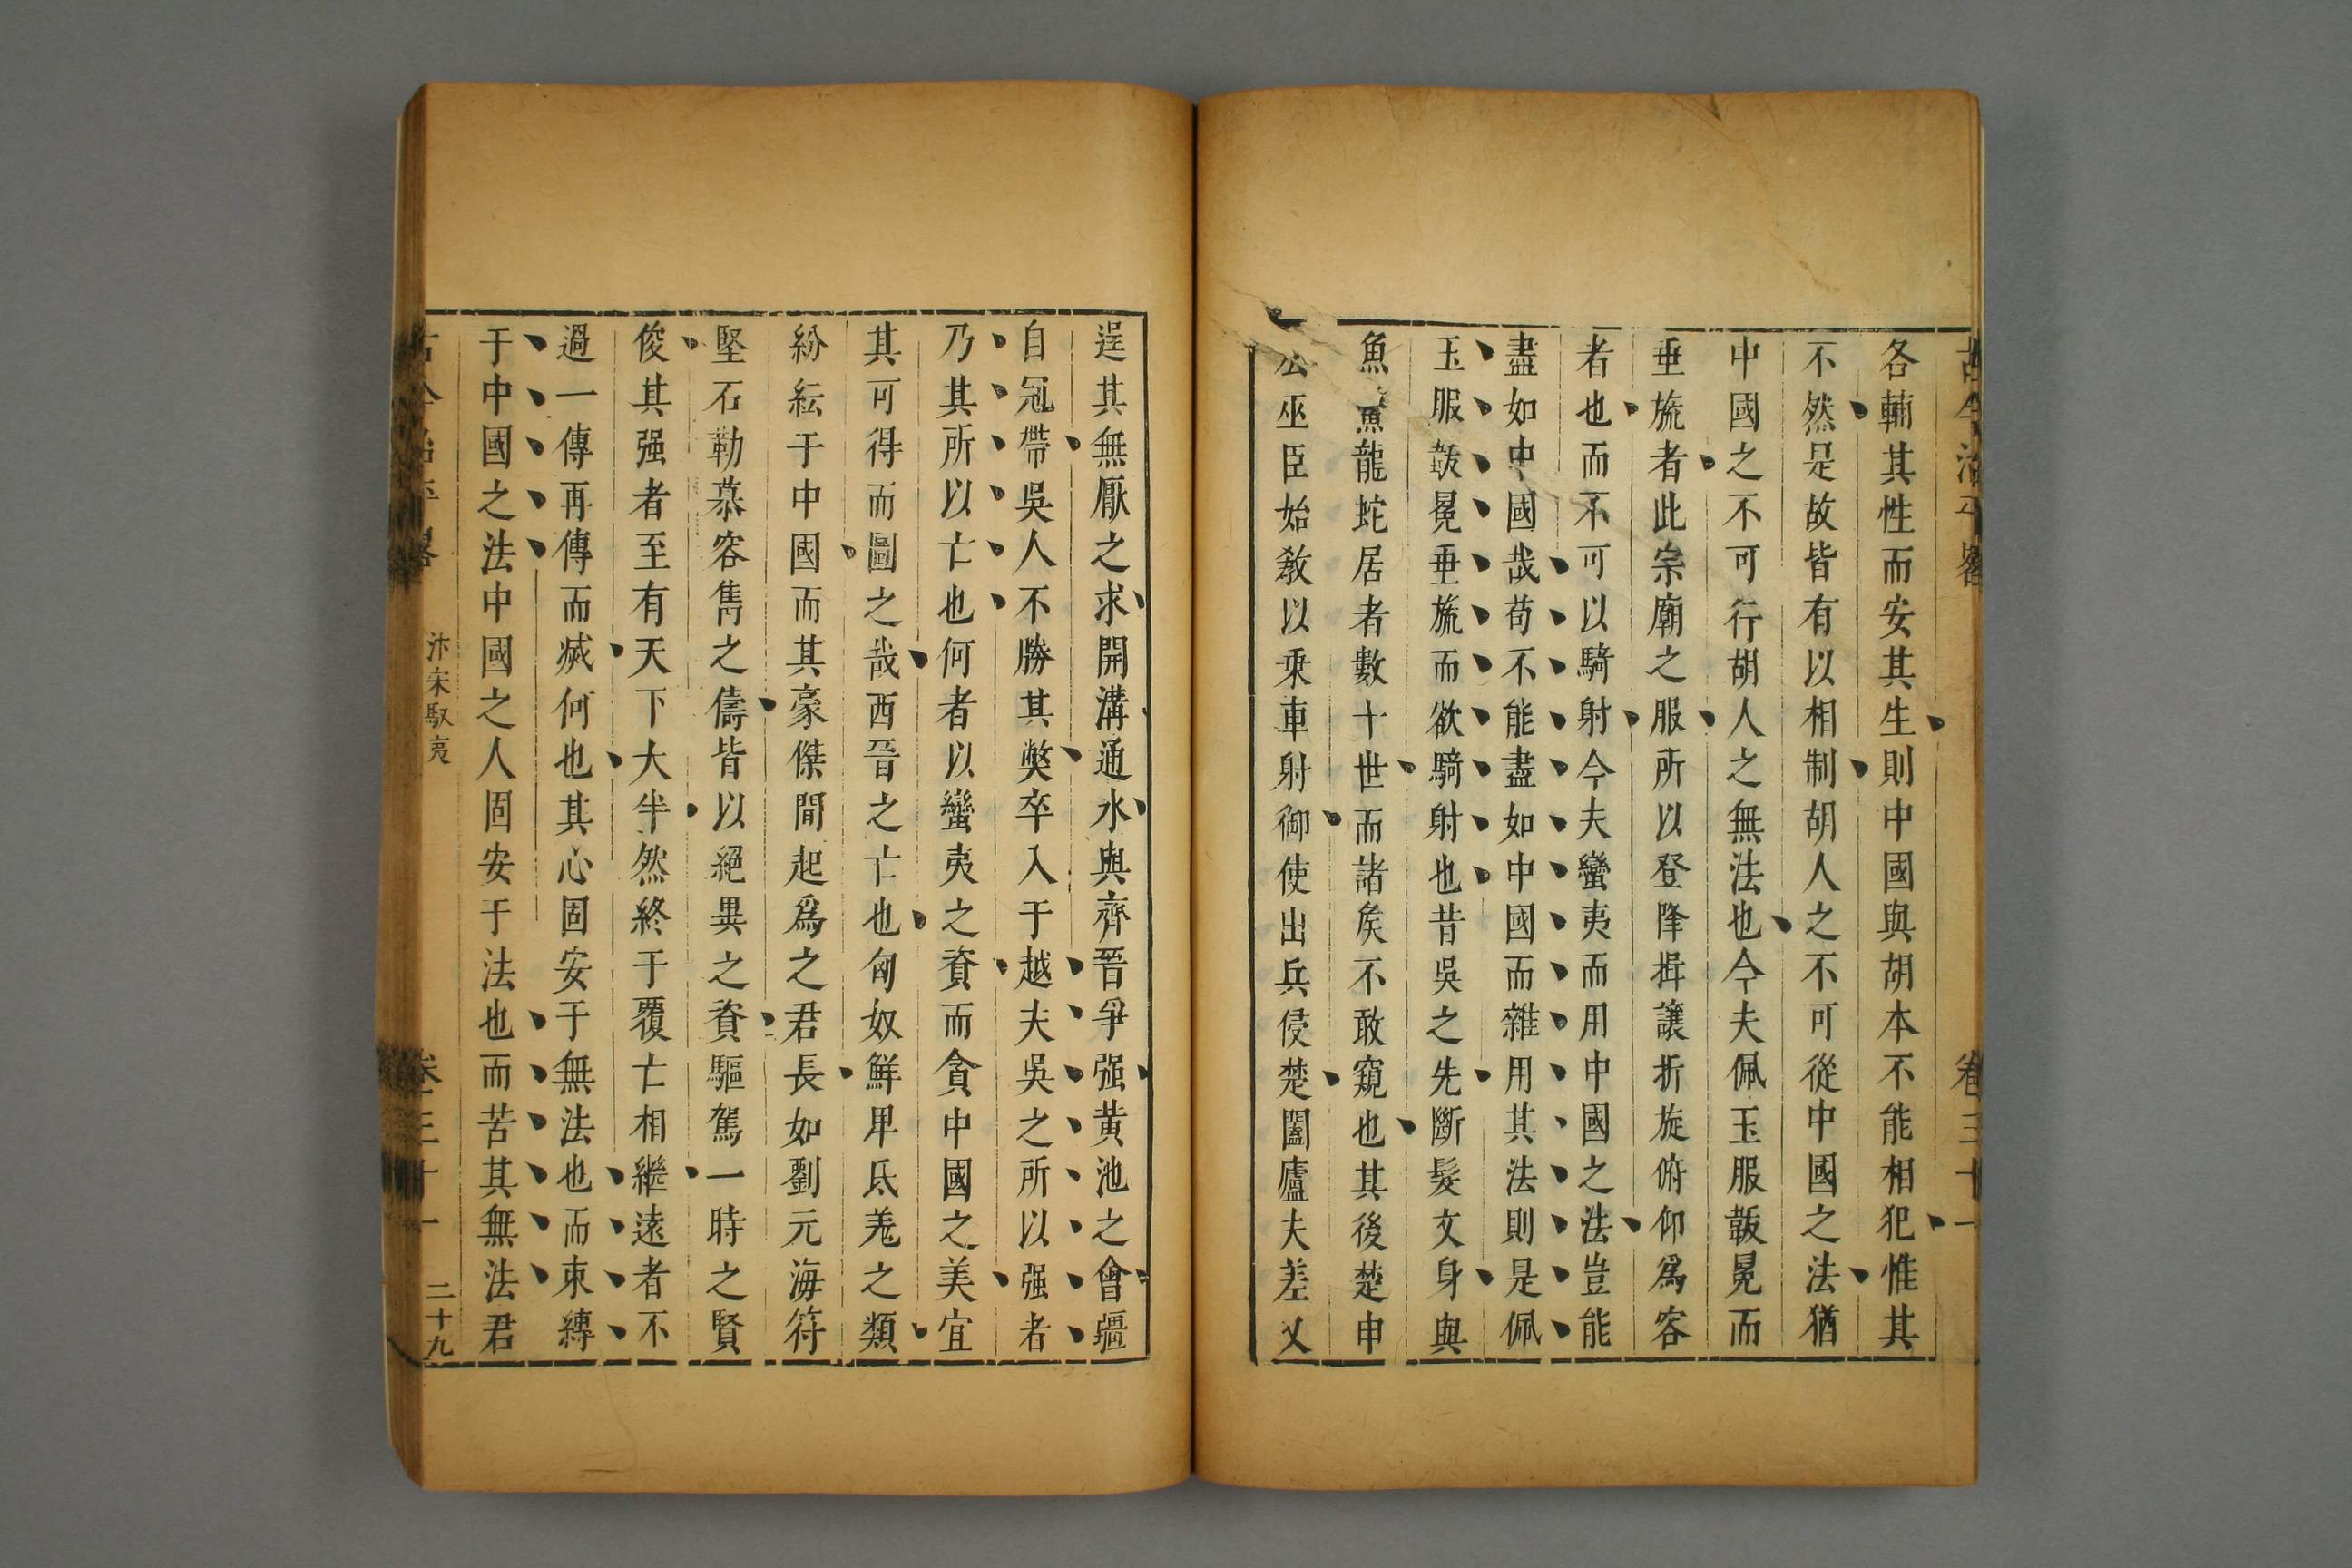 古今治平畧 卷三十一
各輔其性而安其生則中國與胡本不能相犯惟其
不然是故皆有以相制胡人之不可從中國之法猶
中國之不可行胡人之無法也今夫佩玉服韍冕而
垂旒者此宗廟之服所以登降揖讓折旋俯仰爲容
者也而不可以騎射今夫蠻夷而用中國之法豈能
盡如中國哉苟不能盡如中國而雜用其法則是佩
玉服韍冕垂旒而欲騎射也昔吳之先斷髮文身與
魚鱉龍蛇居者數十世而諸矦不敢窺也其後楚申
公巫臣始敎以乗車射御使出兵侵楚闔廬夫差乂
逞其無厭之求開溝通水與齊晉爭强黄池之會疆
自冠帶吳人不勝其獘卒入于越夫吳之所以强者
乃其所以亡也何者以蠻夷之資而貪中國之美宜
其可得而圖之哉西晉之亡也匈奴鮮卑氐羗之類
紛紜于中國而其豪傑間起爲之君長如劉元海符
堅石勒慕容雋之儔皆以絕異之資驅駕一時之賢
俊其强者至有天下大半然終于覆亡相繼遠者不
過一傳再傳而滅何也其心固安于無法也而束縛
于中國之法中國之人固安于法也而苦其無法君
古今治平畧 汴宋馭夷 卷三十一 二十九